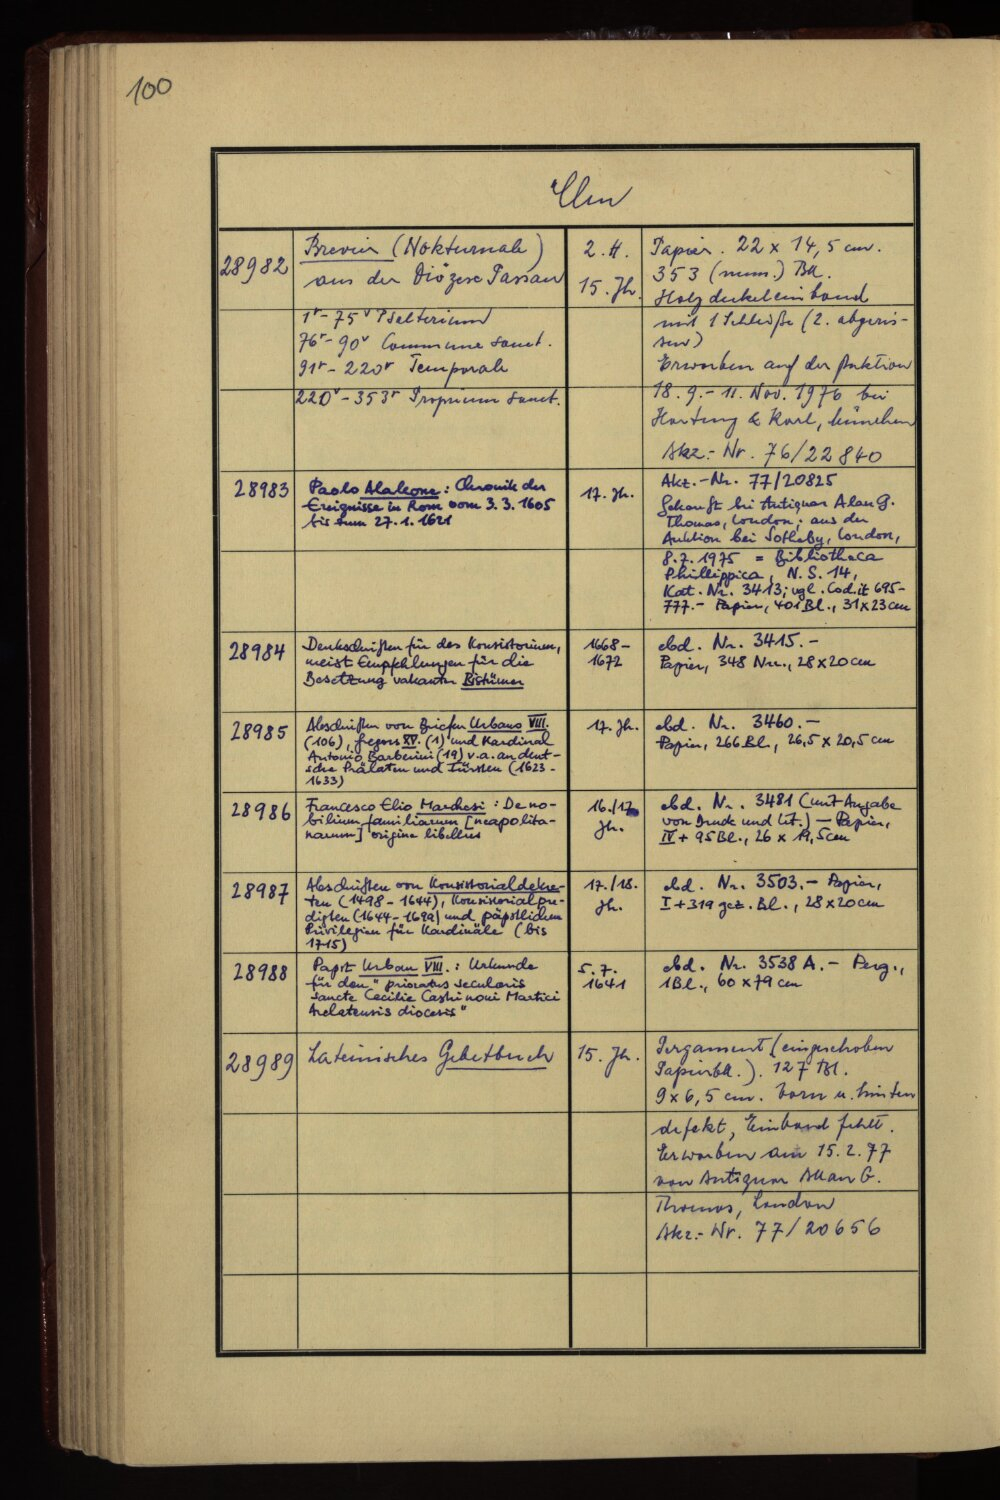 100
Clm
28982
Brevier (Nokturnale)
aus der Diözese Passau
1r - 75v Psalterium
76r - 90v Commune sanct.
91r - 220r Temporale
220v - 353r Proprium sanct.
2. H.
15. Jh.
Papier. 22 x 14,5 cm.
353 (num.) Bll.
Holzdeckeleinband
mit 1 Schließe (2. abgeris-
sen)
Erworben auf der Auktion
18. 9. - 11. Nov. 1976 bei
Hartung & Karl, München
Akz.- Nr. 76/22840
28983
Paolo Alaleone: Chronik der
Ereignisse in Rom vom 3.3.1605
bis zum 27.1.1621
17. Jh.
Akz.-Nr. 77/20825
Gekauft bei Antiquar Alan G.
Thomas, London; aus der
Auktion bei Sotheby, London,
8.7.1975 = Bibliotheca
Phillippica, N.S. 14,
Kat. Nr. 3413; vgl. Cod.it 695-
777.- Papier, 401 Bl., 31x23cm
28984
Denkschriften für das Konsistorium,
meist Empfehlungen für die
Besetzung vakanter Bistümer
1668-
1672
ebd. Nr. 3415.-
Papier, 348 Nrr., 28x20cm
28985
Abschriften von Briefen Urbans VIII.
(106), Gregors XV. (1) und Kardinal
Antonio Barberini (19) v.a. an deut-
sche Prälaten und Fürsten (1623-
1633)
17. Jh.
ebd. Nr. 3460.-
Papier, 266 Bl., 26,5 x 20,5 cm
28986
Francesco Elio Marchesi: De no-
bilium familiarum [neapolita-
narum] origine libellus
16./17.
Jh.
ebd. Nr. 3481 (mit Angabe
von Druck und Lit.) - Papier,
IV + 95 Bl., 26 x 19,5cm
28987
Abschriften von Konsistorialdekre-
ten (1498 - 1644), Konsistorialpre-
digten (1644-1692) und päpstlichen
Privilegien für Kardinäle (bis
1715)
17./18.
Jh.
ebd. Nr. 3503.- Papier,
I + 319 gez. Bl., 28x20cm
28988
Papst Urban VIII.: Urkunde
für den "prioratus secularis
Sancte Cecilie Martici
Arelatensis diocesis"
5.7.
1641
ebd. Nr. 3538 A.- Perg.,
1 Bl., 60x79 cm
28989
Lateinisches Gebetbuch
15. Jh.
Pergament (eingeschoben
Papierbll.). 127 Bl.
9x6,5 cm. Vorn u. hinten
defekt, Einband fehlt.
Erworben am 15.2.77
von Antiquar Allan G.
Thomas, London
Akz.- Nr. 77/20656